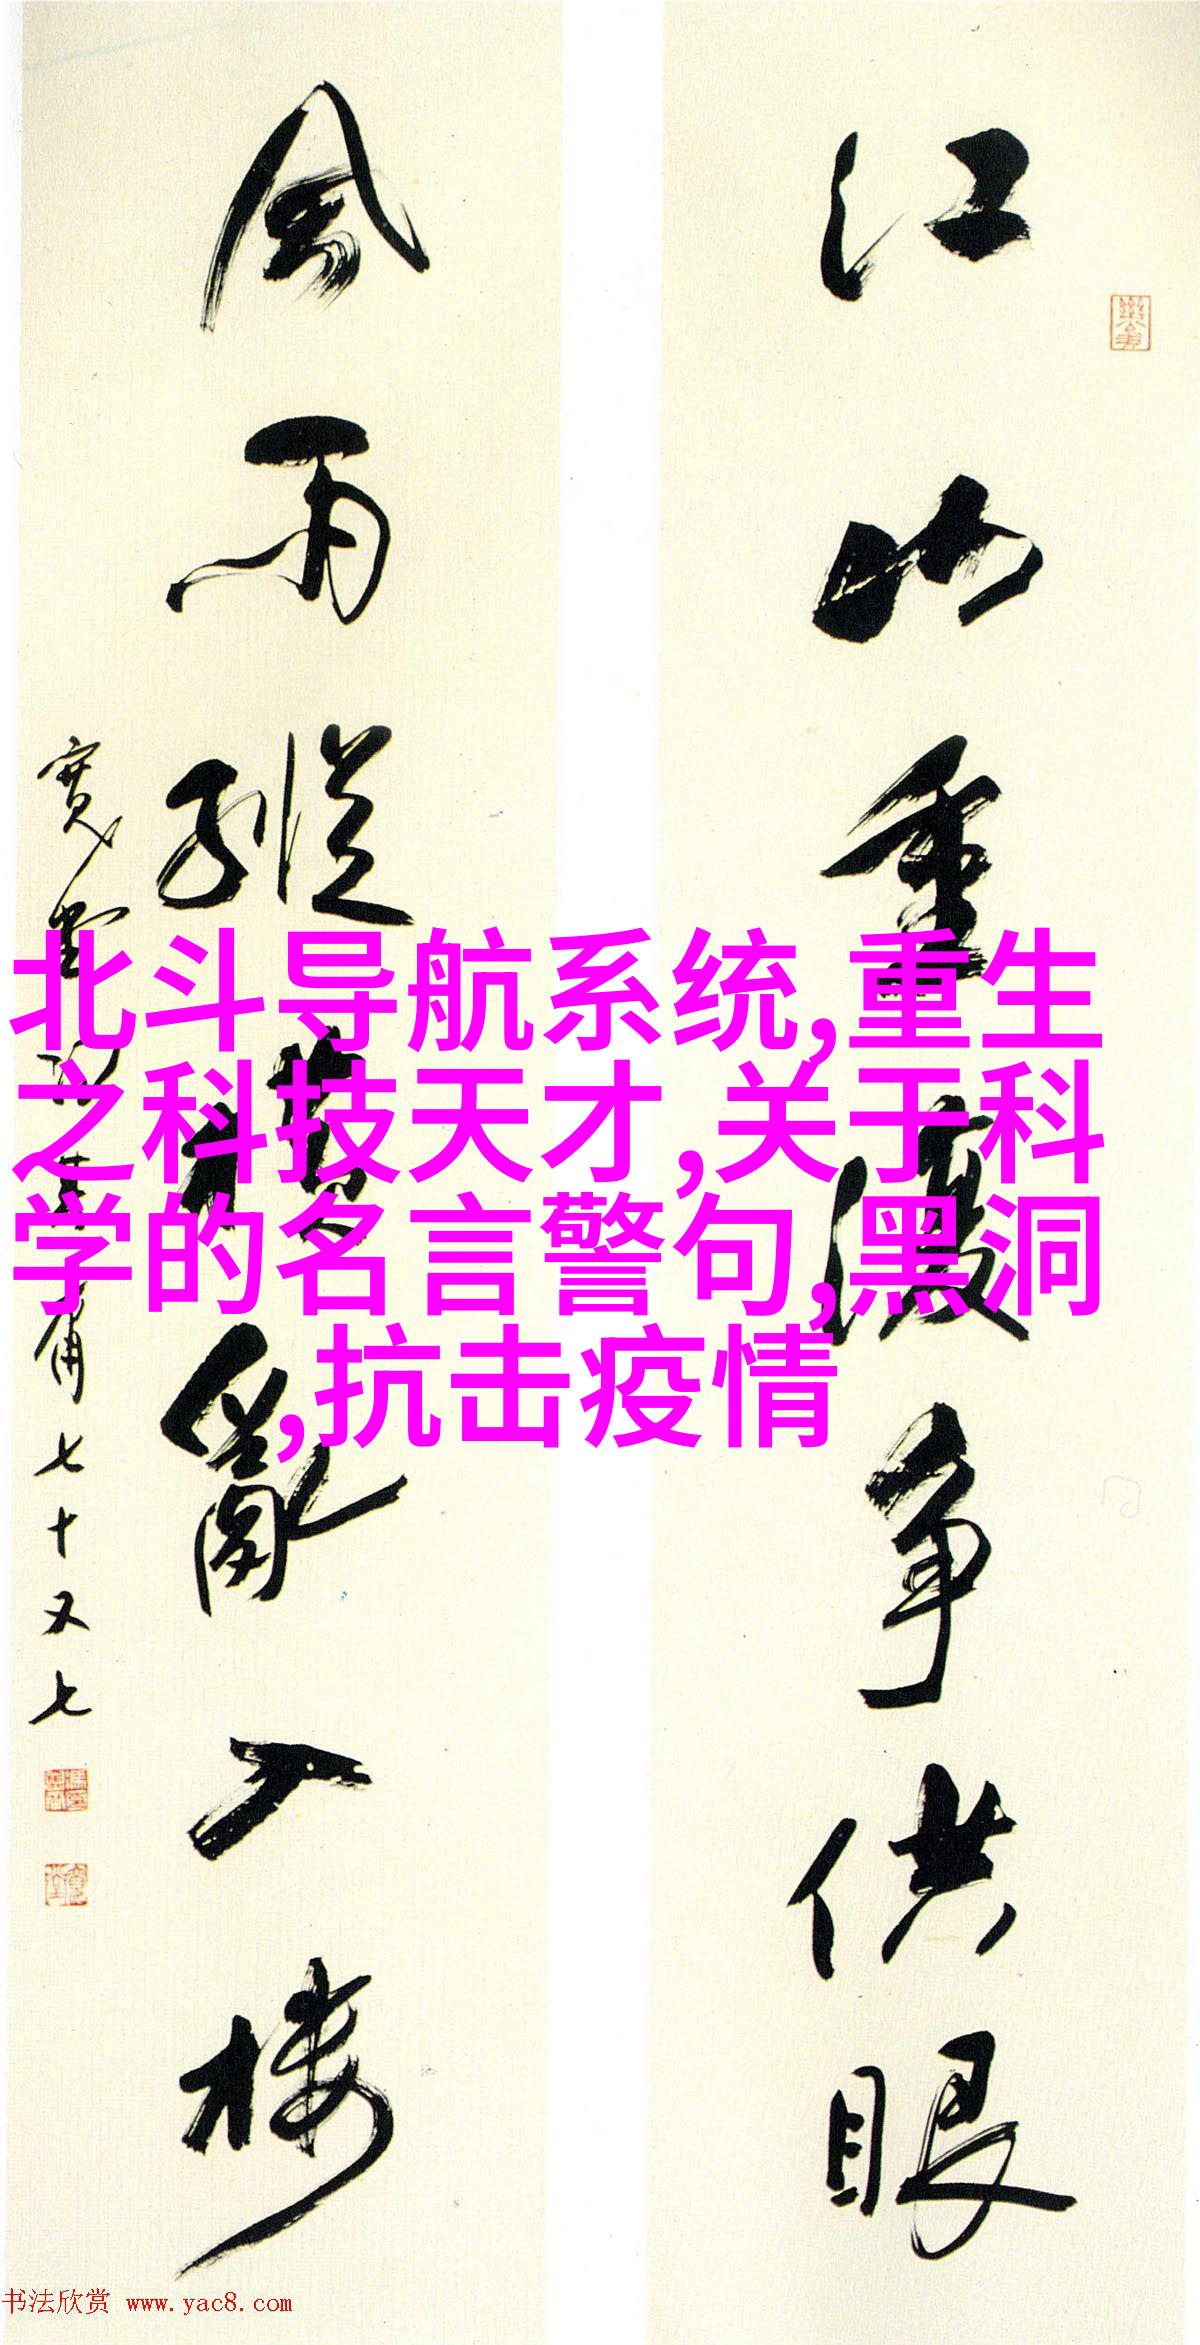 江山重複争供眼
風雨縱橫亂入楼
寬堂馮其庸七十又七
北斗导航系统,重生
之科技天才,关于科
学的名言警句,黑洞
,抗击疫情
书法欣赏 www.yac8.com